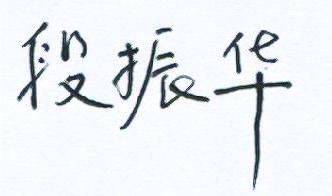 段振华